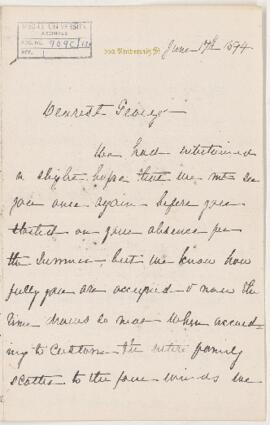 McGILL UNIVERSITY
ARCHIVES
ACC. NO. 909C/
REF.
University St.
June 17th 1894
Dearest George
We had entertained
a slight hope that we mt see
you once again before you
started on your absence for
the summer but we know how
fully you are occupied & now the
time draws so near when accord-
ing to custom the entire family
scatter to the four winds we